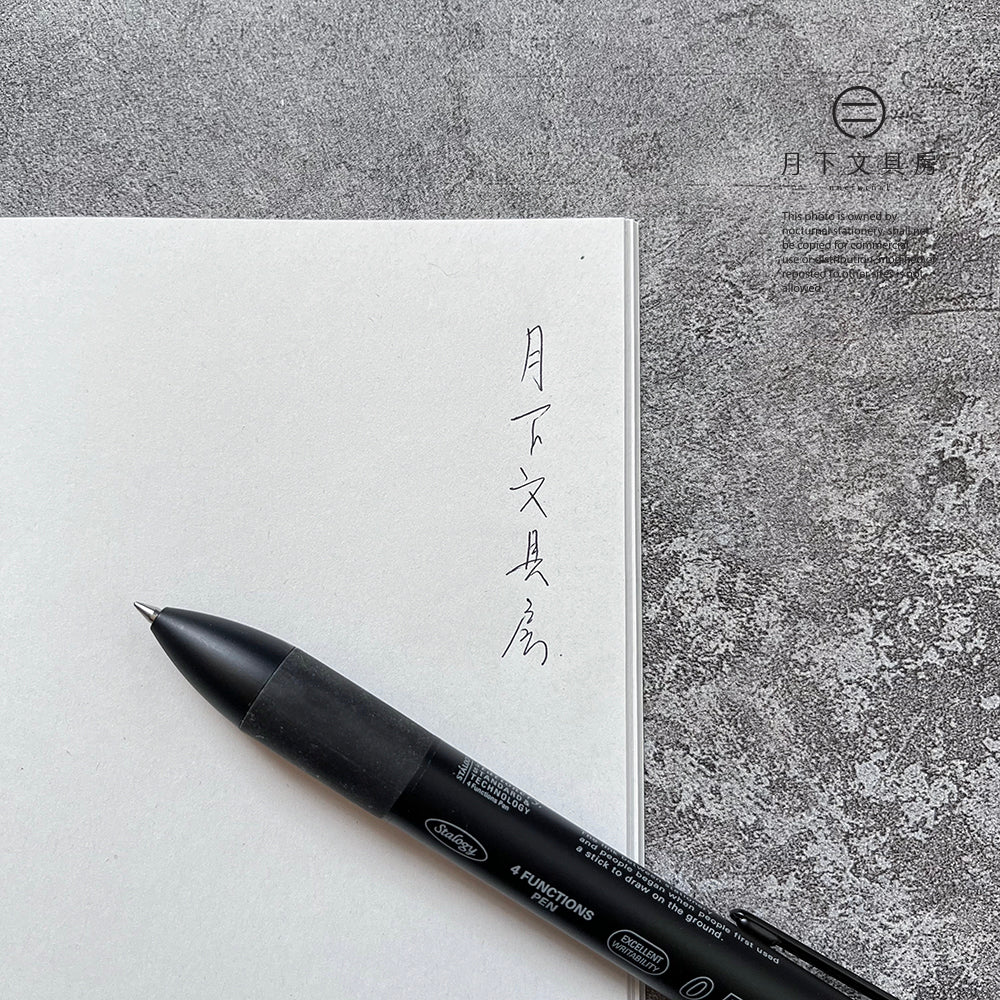 月下文具房
This photo is owned by
nocturnal stationery, shall not
be copied for commercial
use or distribution, modified or
reposted to other sites is not
allowed.
月下文具房.
STANDARD &
TECHNOLOGY
4 Functions Pen
Stalogy
4 FUNCTIONS
PEN
and people began when people first used
a stick to draw on the ground.
EXCELLENT
WRITABILITY